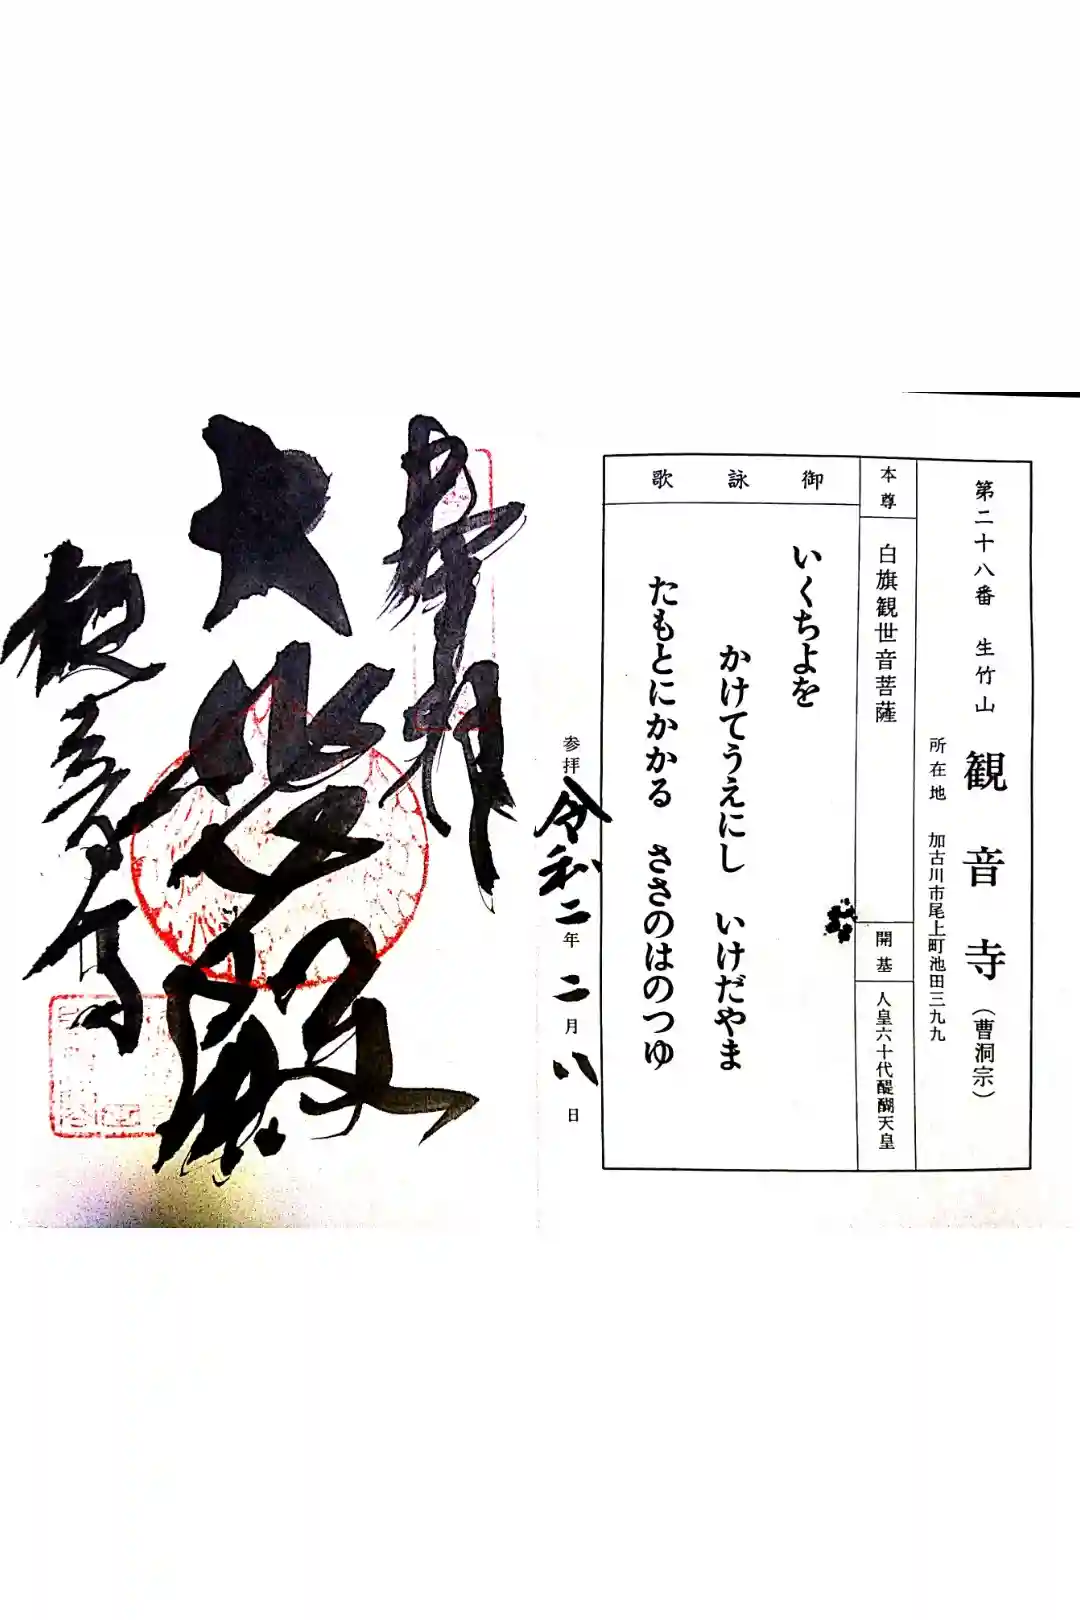 第二十八番 生竹山 観音寺（曹洞宗）
所在地 加古川市尾上町池田三九九
本尊
白旗観世音菩薩
開基
人皇六十代醍醐天皇
御詠歌
いくちよを
かけてうえにし いけだやま
たもとにかかる ささのはのつゆ
参拝 令和二年二月八日
奉拝
大悲殿
観音寺